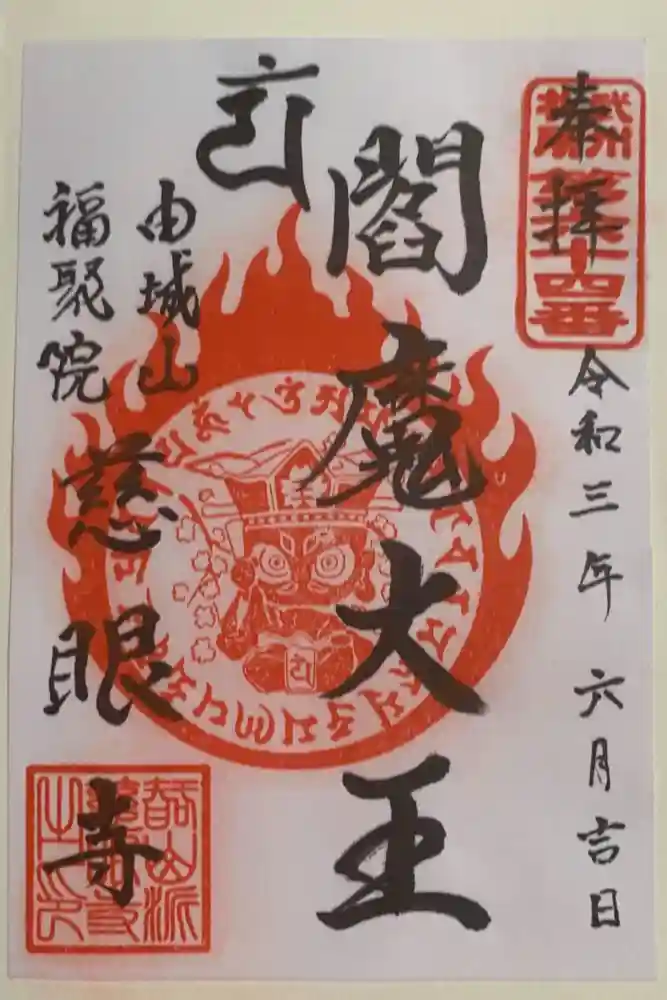 奉拝
十四番
令和三年 六月吉日
閻魔大王
由城山
福聚院
慈眼寺